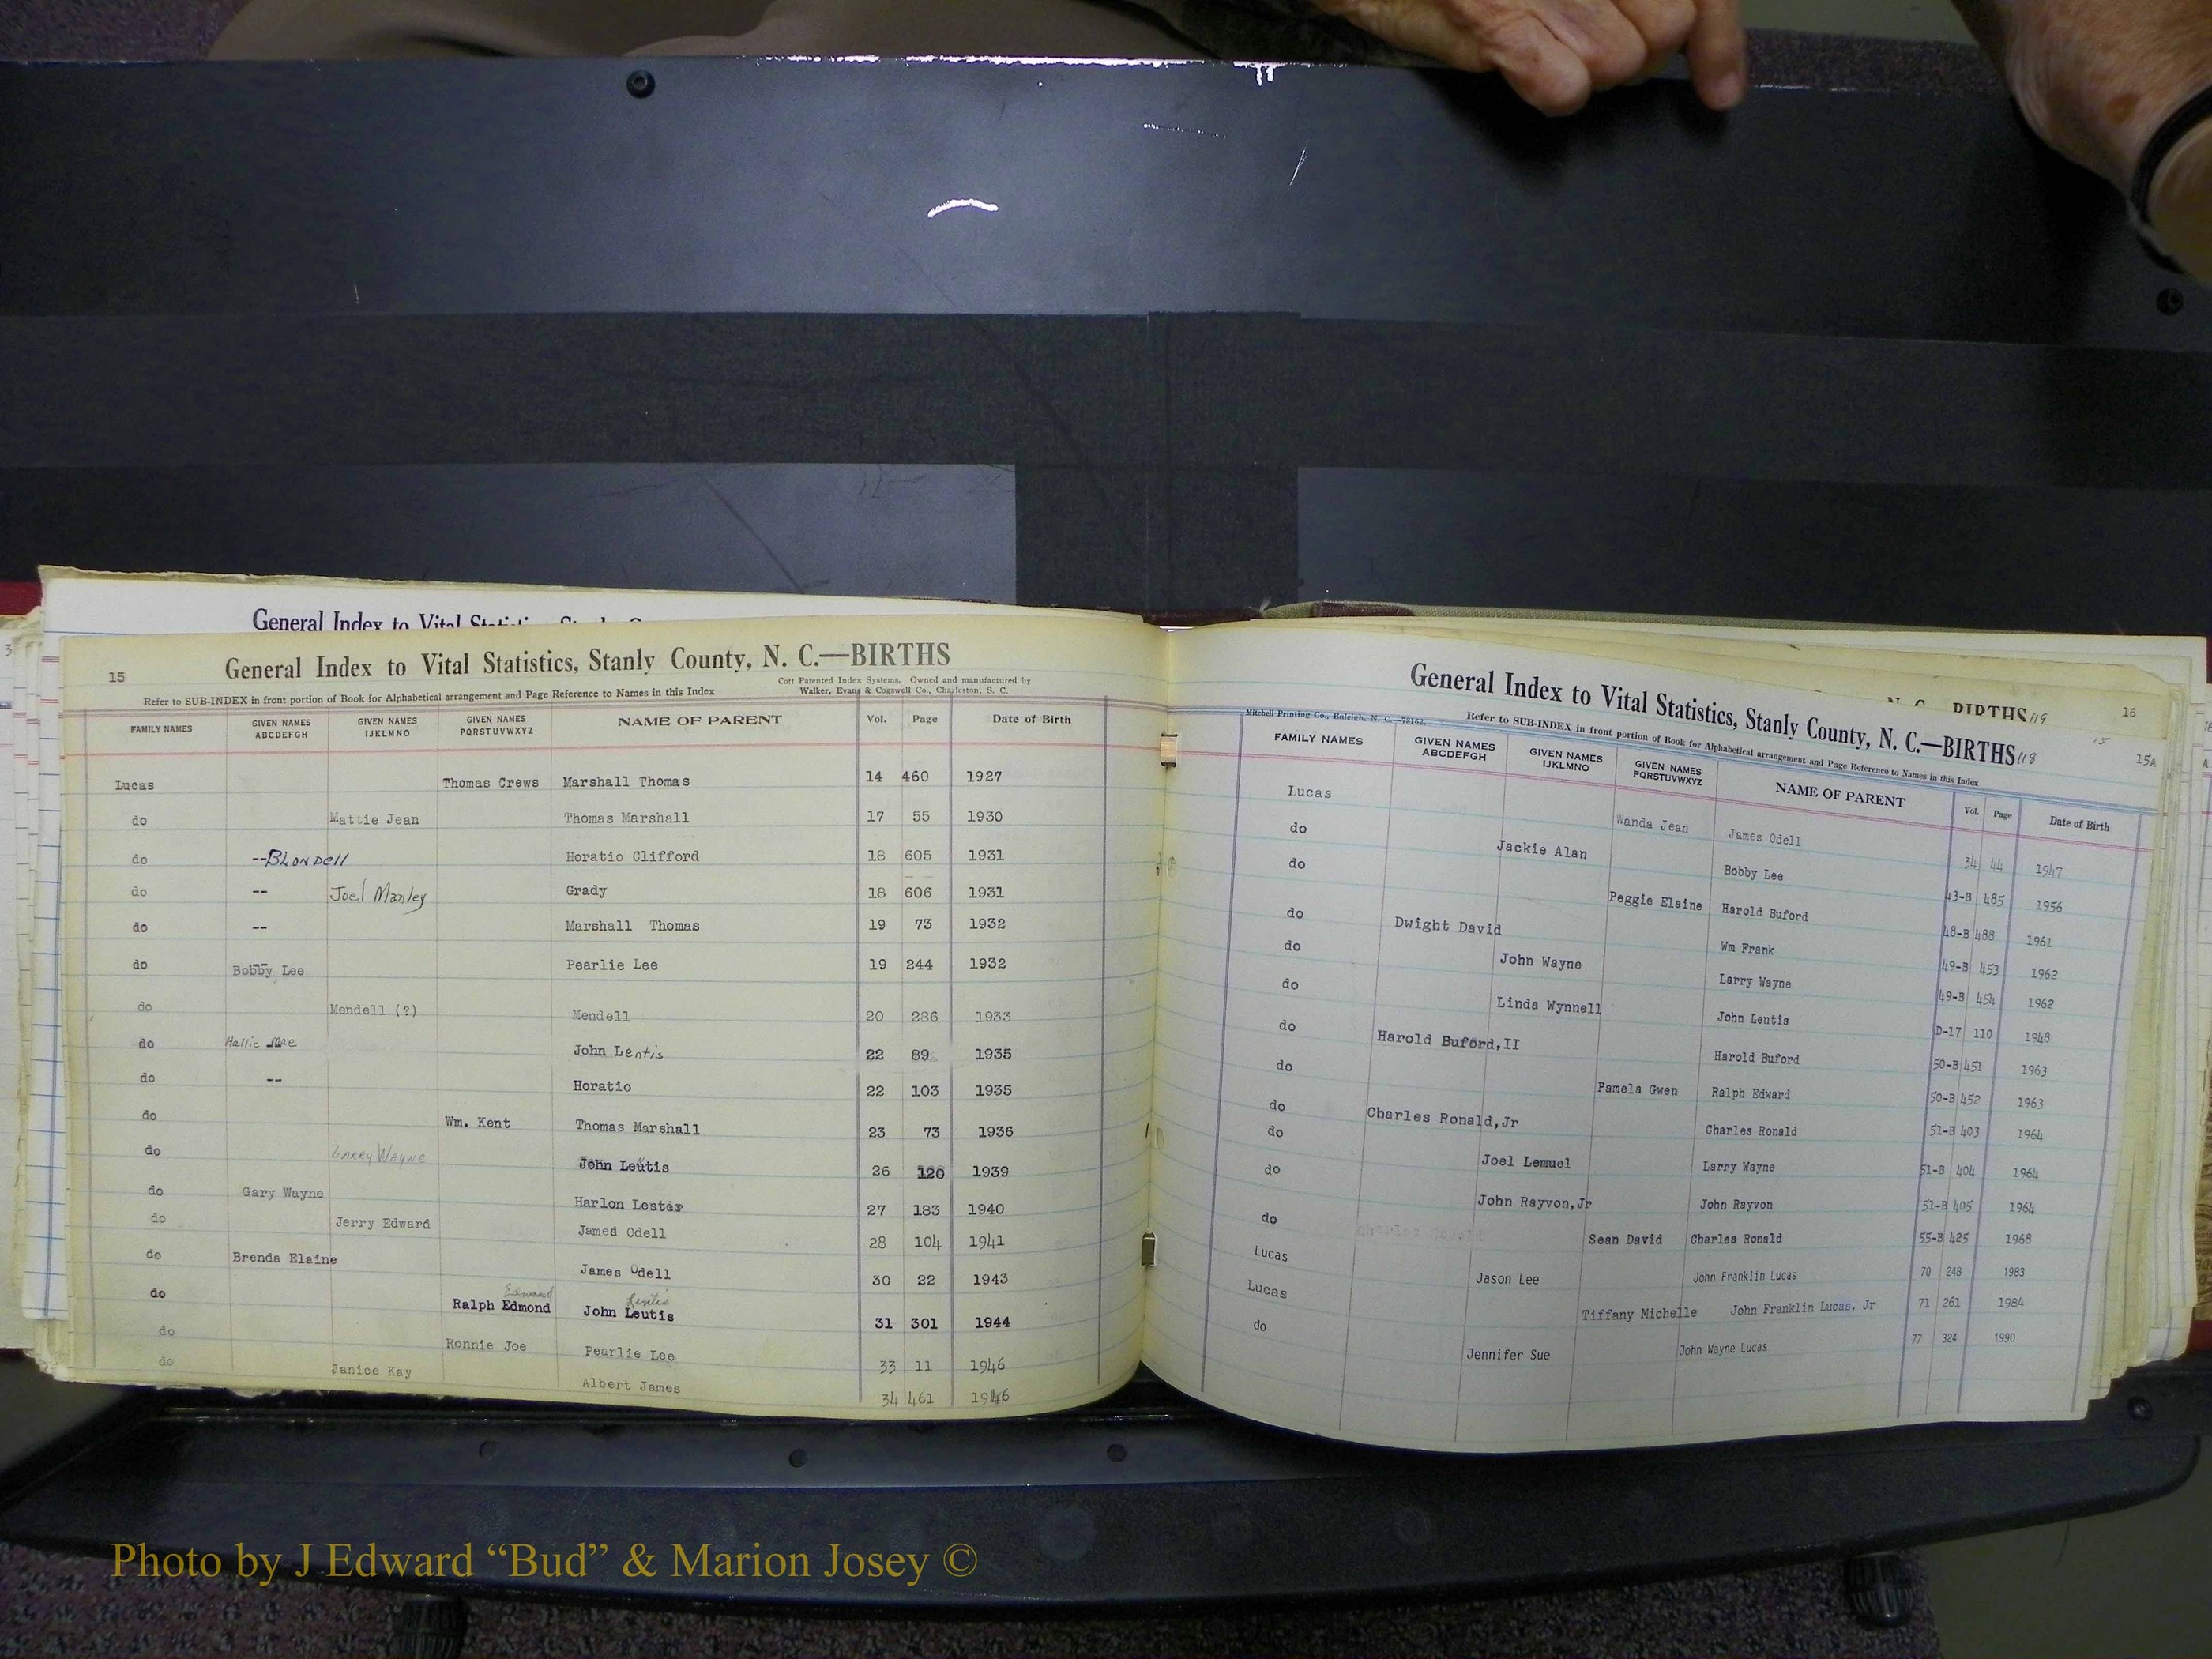 General Index to Vital
15
General Index to Vital Statistics, Stanly County, N. C.—BIRTHS
Cott Patented Index Systems, Owned and manufactured by
Refer to SUB-INDEX in front portion of Book for Alphabetical arrangement and Page Reference to Names in this Index
Walker, Evans & Cogswell Co., Charleston, S. C.
FAMILY NAMES GIVEN NAMES ABCDEFGH GIVEN NAMES IJKLMNO GIVEN NAMES PQRSTUVWXYZ NAME OF PARENT Vol. Page Date of Birth
Lucas Thomas Crews Marshall Thomas 14 460 1927
do Mattie Jean Thomas Marshall 17 55 1930
do --Blondell Horatio Clifford 18 605 1931
do -- Joel Manley Grady 18 606 1931
do -- Marshall Thomas 19 73 1932
do -- Bobby Lee Pearlie Lee 19 244 1932
do Mendell (?) Mendell 20 286 1933
do Hallie Mae John Lentis 22 89 1935
do -- Horatio 22 103 1935
do Wm. Kent Thomas Marshall 23 73 1936
do Larry Wayne John Leutis 26 120 1939
do Gary Wayne Harlon Lester 27 183 1940
do Jerry Edward James Odell 28 104 1941
do Brenda Elaine James Odell 30 22 1943
Edward Lentis
do Ralph Edmond John Leutis 31 301 1944
do Ronnie Joe Pearlie Lee 33 11 1946
do Janice Kay Albert James 34 461 1946
N. C. BIRTHS 119
16
General Index to Vital Statistics, Stanly County, N. C.—BIRTHS 118
15
15A
Mitchell Printing Co., Raleigh, N. C.—73162.
Refer to SUB-INDEX in front portion of Book for Alphabetical arrangement and Page Reference to Names in this Index
FAMILY NAMES GIVEN NAMES ABCDEFGH GIVEN NAMES IJKLMNO GIVEN NAMES PQRSTUVWXYZ NAME OF PARENT Vol. Page Date of Birth
Lucas Wanda Jean James Odell 34 44 1947
do Jackie Alan Bobby Lee 43-B 485 1956
do Peggie Elaine Harold Buford 48-B 488 1961
do Dwight David Wm Frank 49-B 453 1962
do John Wayne Larry Wayne 49-B 454 1962
do Linda Wynnell John Lentis D-17 110 1948
do Harold Buford,II Harold Buford 50-B 451 1963
do Pamela Gwen Ralph Edward 50-B 452 1963
do Charles Ronald,Jr Charles Ronald 51-B 403 1964
do Joel Lemuel Larry Wayne 51-B 404 1964
do John Rayvon,Jr John Rayvon 51-B 405 1964
do Sean David Charles Ronald 55-B 425 1968
Lucas Jason Lee John Franklin Lucas 70 248 1983
Lucas Tiffany Michelle John Franklin Lucas, Jr 71 261 1984
do Jennifer Sue John Wayne Lucas 77 324 1990
Photo by J Edward “Bud” & Marion Josey ©